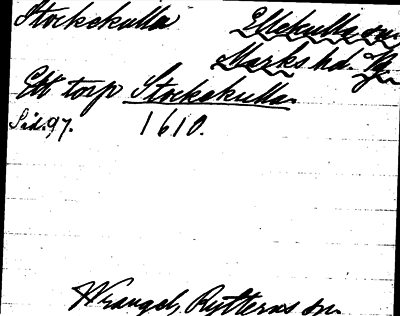 Stockekulla Ellekulla sn.
Marks hd. Vg.
Ett torp Stockekulla.
Sid. 97. 1610.
Wrangel, Rytterns sn.